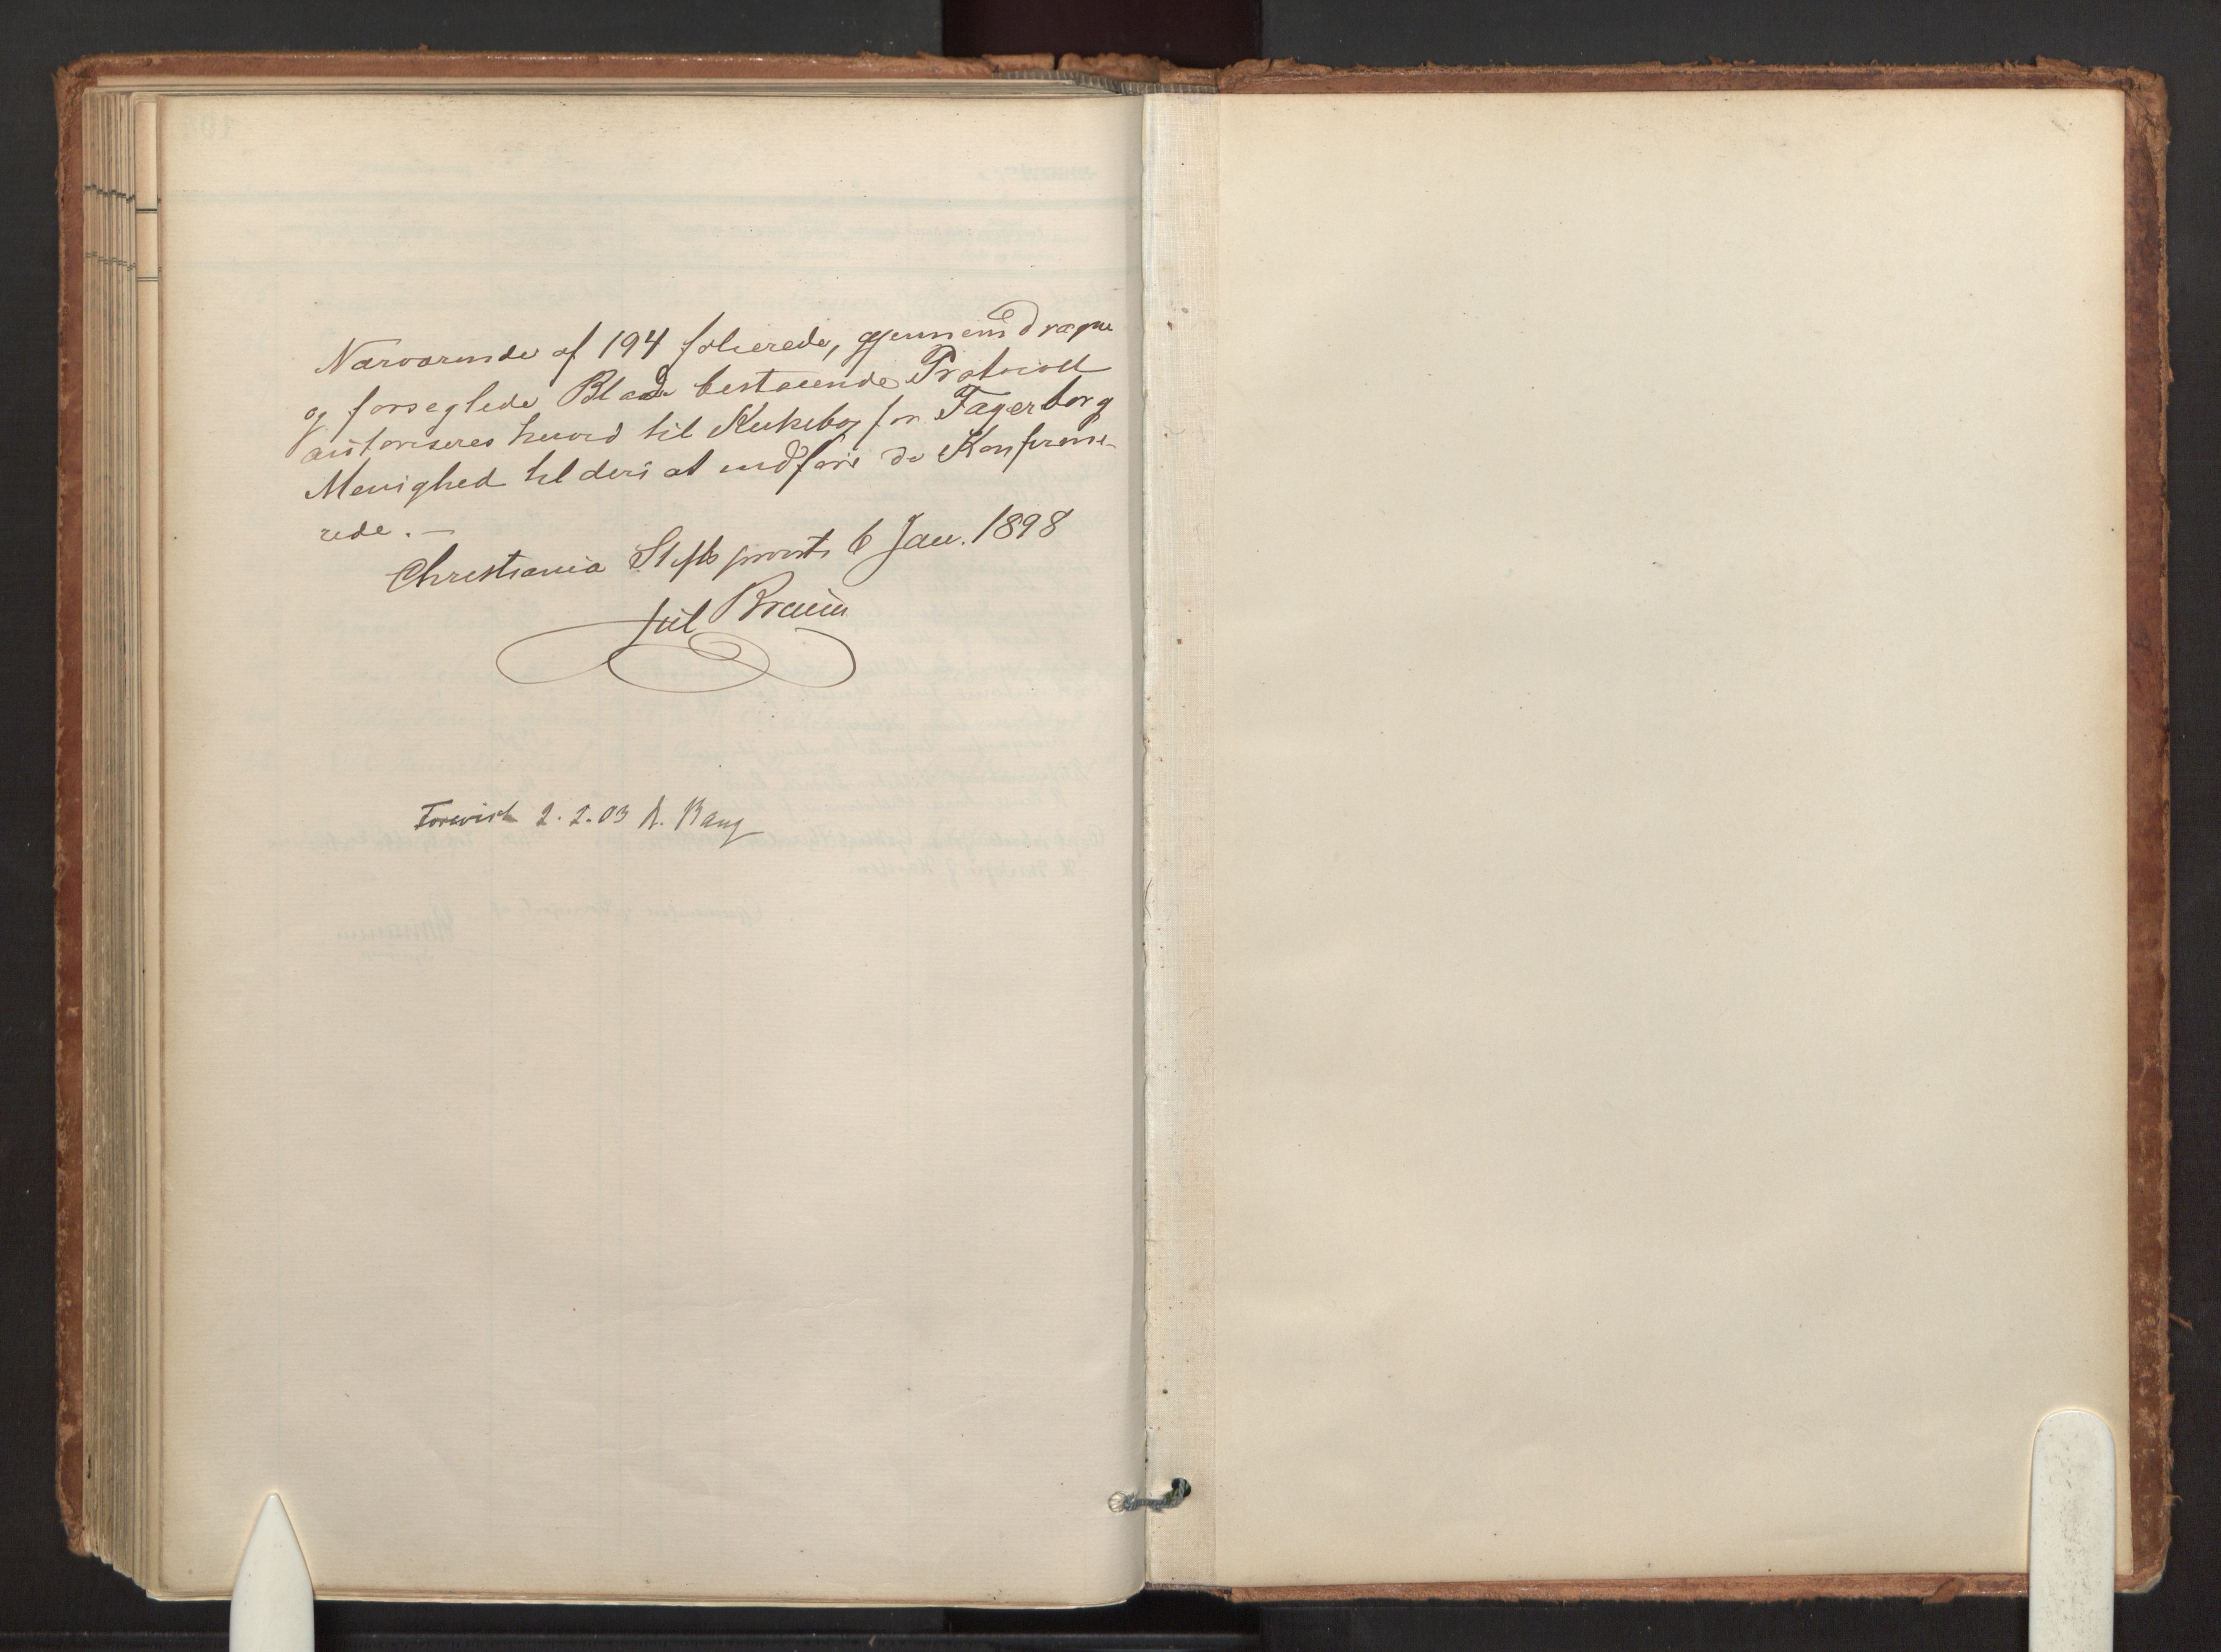 Nærværende af 194 folierede, gjennemdragne
og forseglede Blade bestaaende Protocoll
autoriseres herved til Kirkebog for Fagerborg
Menighed til deri at indføre de Konfirme-
rede. —
Christiania Stiftsprovsti 6 Jan. 1898
Jul Bruun
Forevist 2.2.03 A. Bang